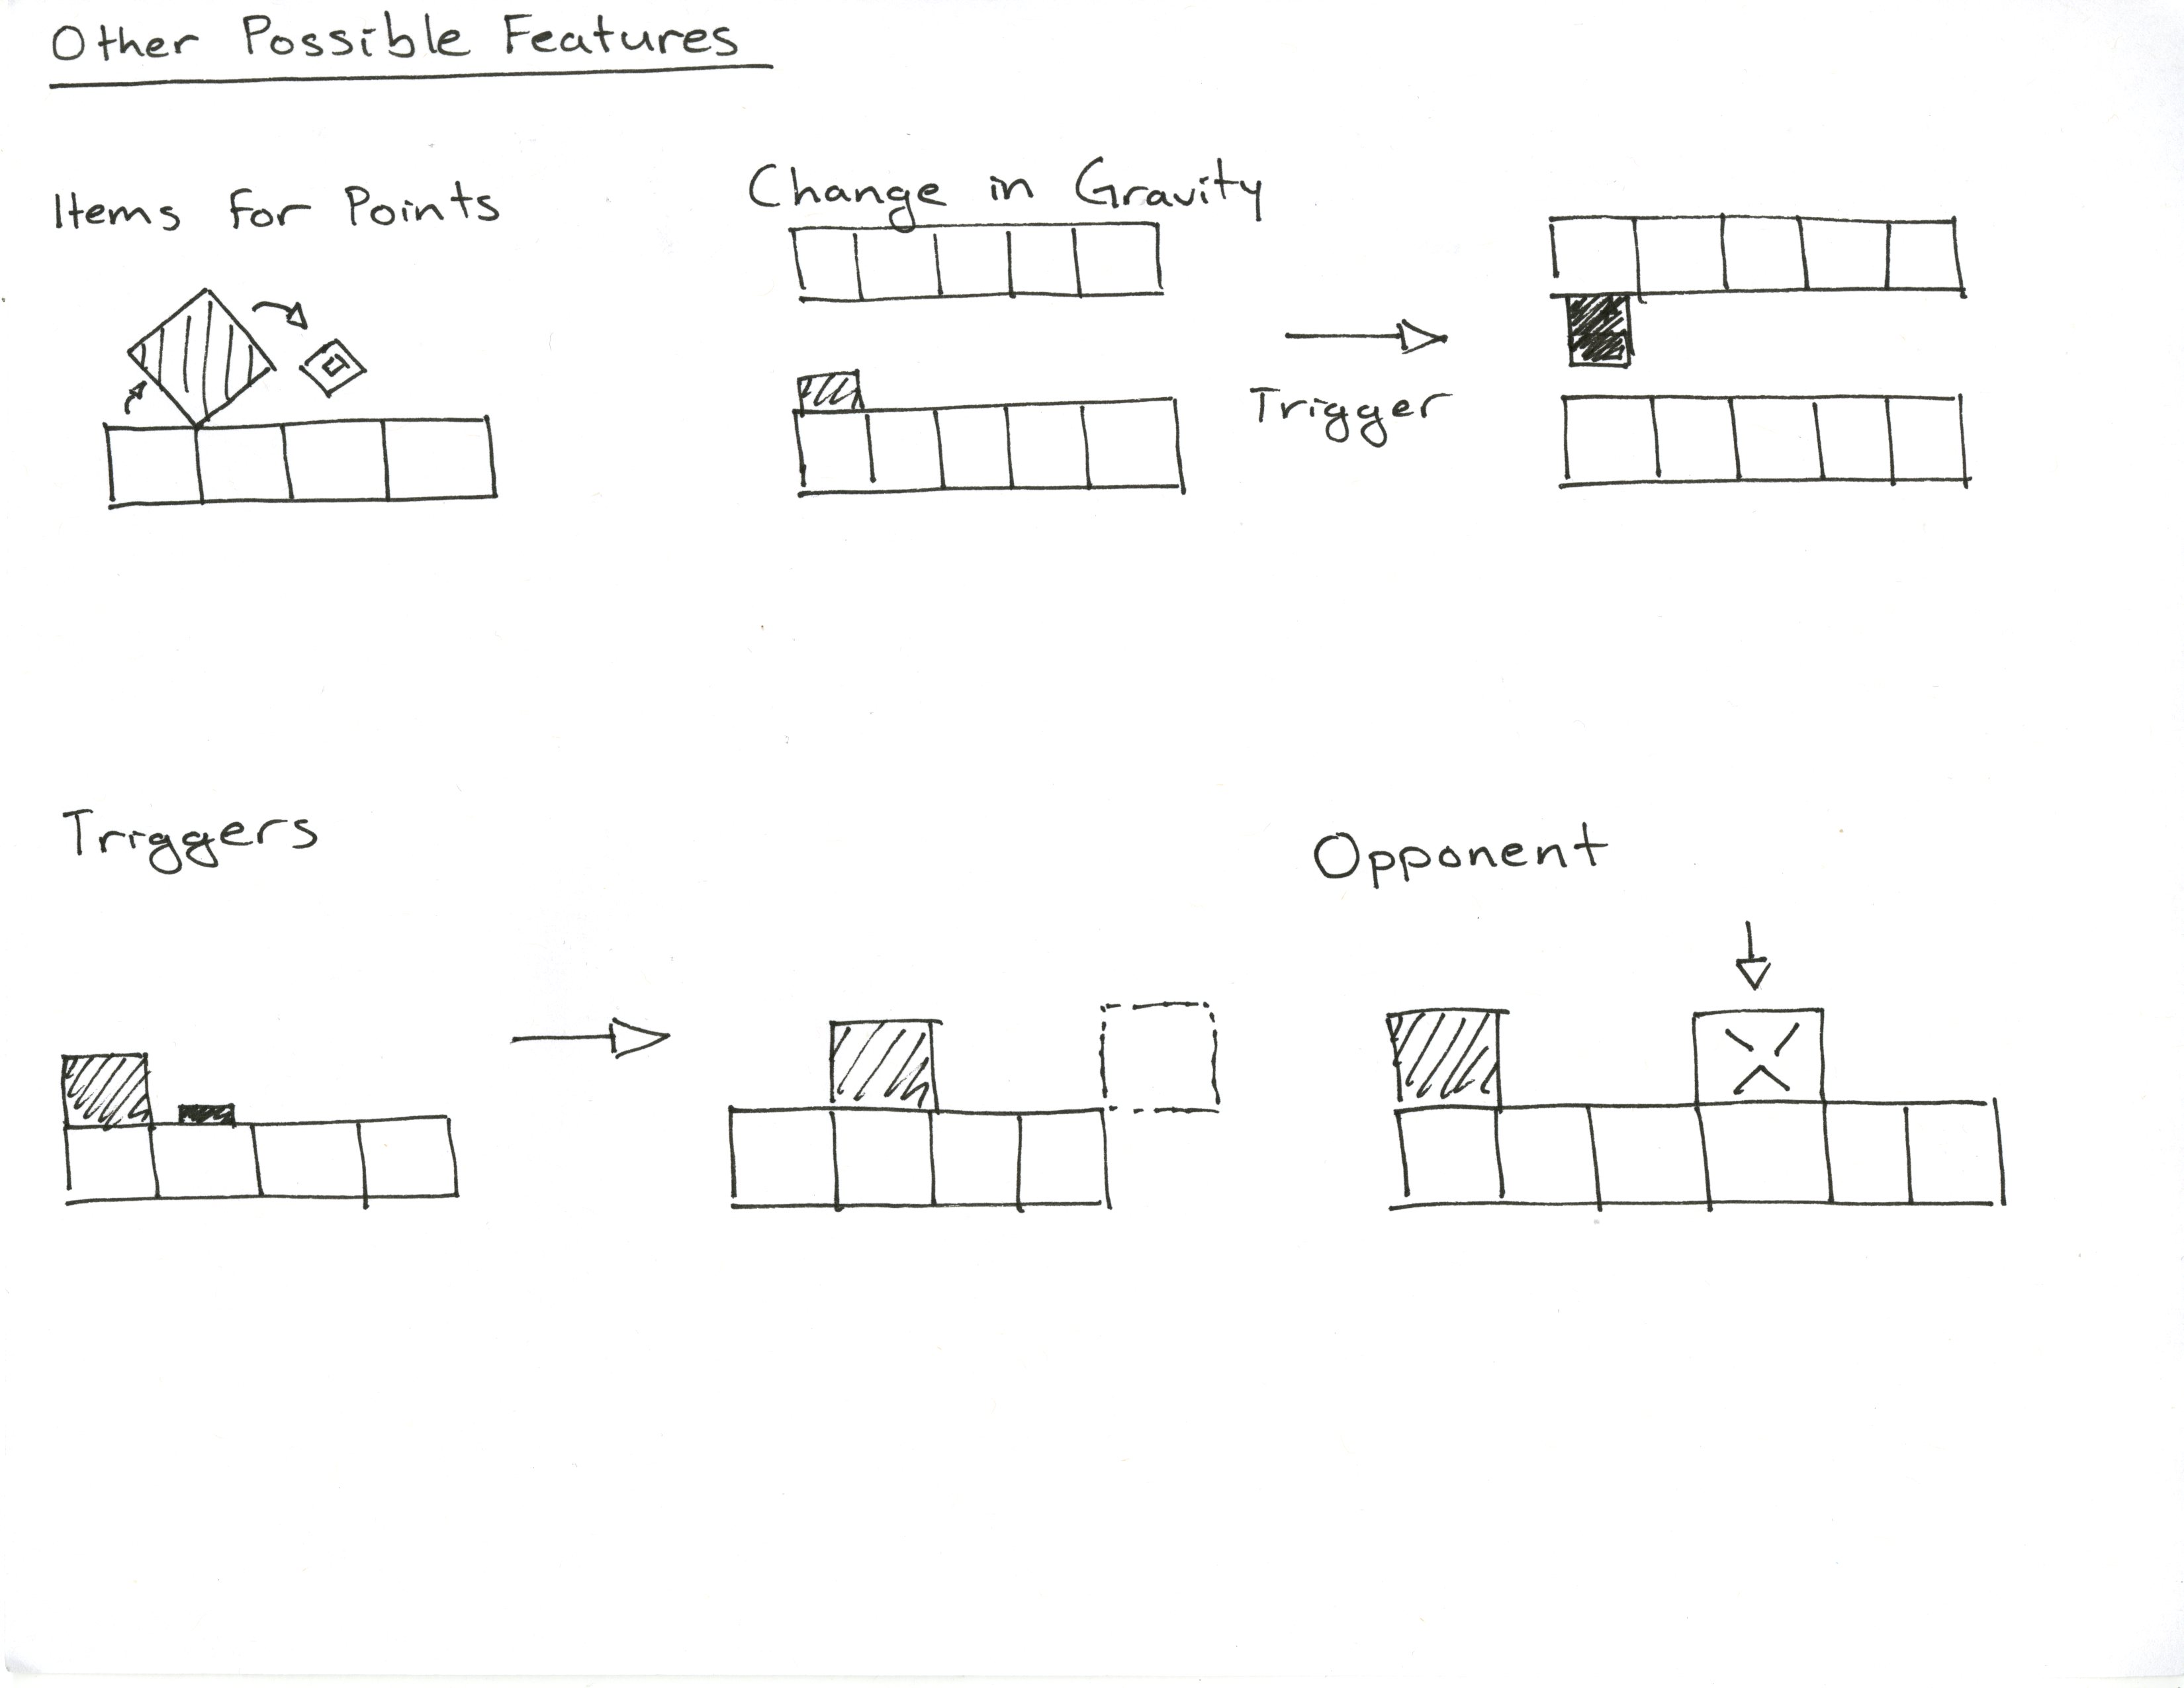 Other Possible Features
Items for Points
Change in Gravity
Trigger
Triggers
Opponent